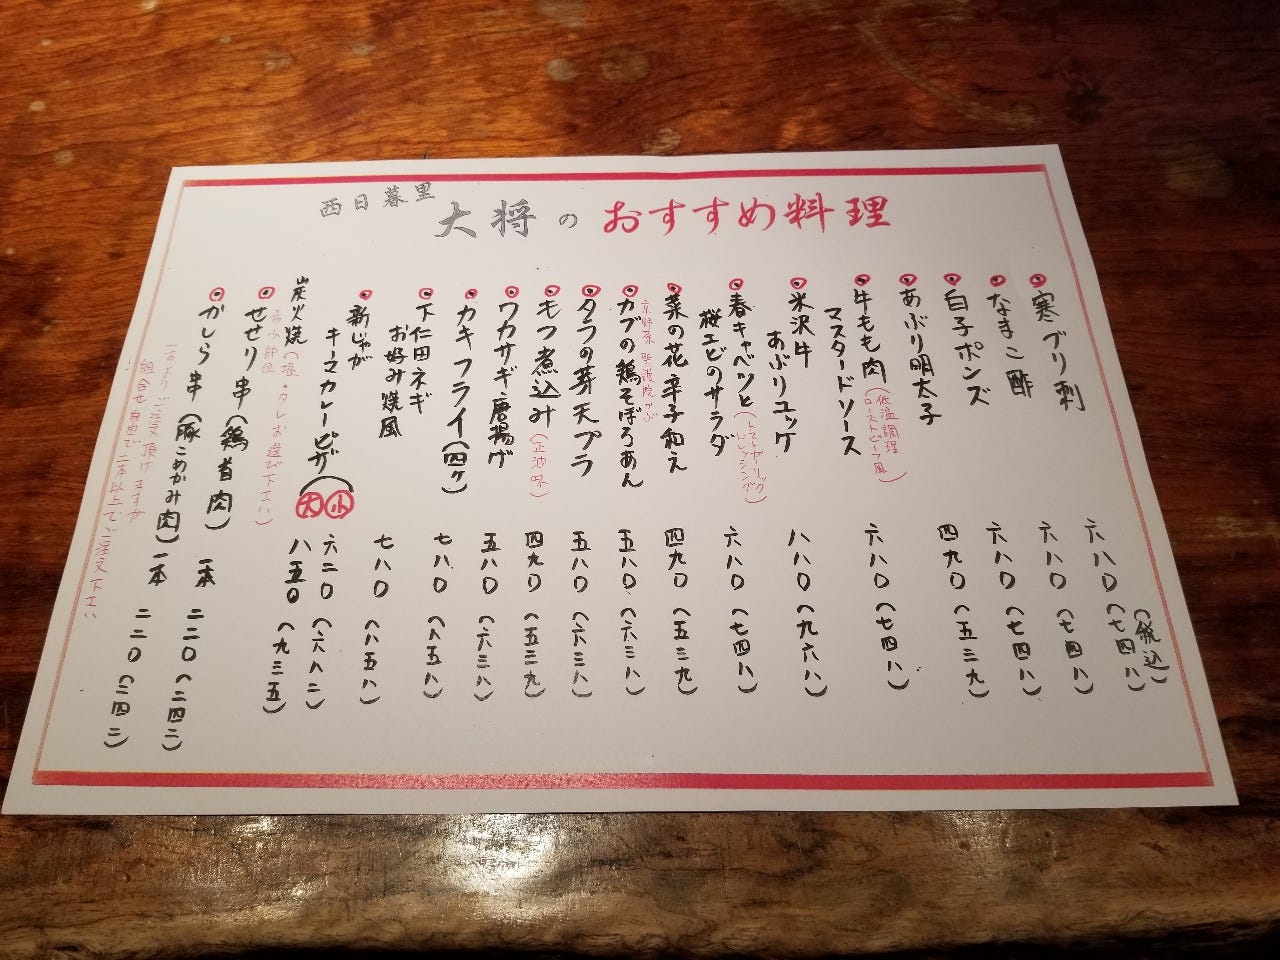 西日暮里
大将のおすすめ料理
寒ブリ刺 六八〇(七四八)
(税込)
なまこ酢 六八〇(七四八)
白子ポンズ 六八〇(七四八)
あぶり明太子 四九〇(五三九)
牛もも肉(低温調理
ローストビーフ風)
マスタードソース 六八〇(七四八)
米沢牛
あぶりユッケ 八八〇(九六八)
春キャベツと
桜エビのサラダ 六八〇(七四八)
(トマトガーリック
ドレッシング)
菜の花辛子和え 四九〇(五三九)
京野菜 聖護院かぶ
カブの鶏そぼろあん 五八〇(六三八)
タラの芽天プラ 五八〇(六三八)
モツ煮込み(正油味) 四九〇(五三九)
ワカサギ唐揚げ 五八〇(六三八)
カキフライ(四ヶ)
下仁田ネギ
お好み焼風 七八〇(八五八)
新じゃが
キーマカレーピザ 七八〇(八五八)
小 六二〇(六八二)
大 八五〇(九三五)
炭火焼(塩・タレお選び下さい)
希少部位
せせり串(鶏首肉) 一本 二二〇(二四二)
かしら串(豚こめかみ肉) 一本 二二〇(二四二)
一本よりご注文頂けますが
組合せ自由で二本以上でご注文下さい